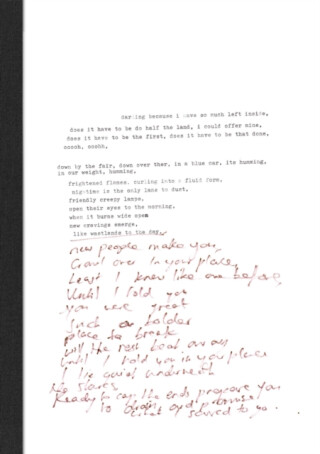 because i have so much left inside,
does it have to be do half the land, i could offer mine,
does it have to be the first, does it have to be that done,
ooooh, ooohh,
down by the fair, down over ther, in a blue car, its humming,
in our weight, humming,
frightened flames, curling into a fluid form,
nightime is the only lane to dust,
friendly creepy lanes,
open their eyes to the morning,
when it burns wide open
new cravings emerge,
like wastlands to the day.
new people make you
Crawl over in your place,
Least I knew like one before
Until I told you
you were great
Such a bolder
place to break
will the rest
Until I told you in your place
I lie quiet underneath
the stars
Ready to the ends prepare you
to and promise